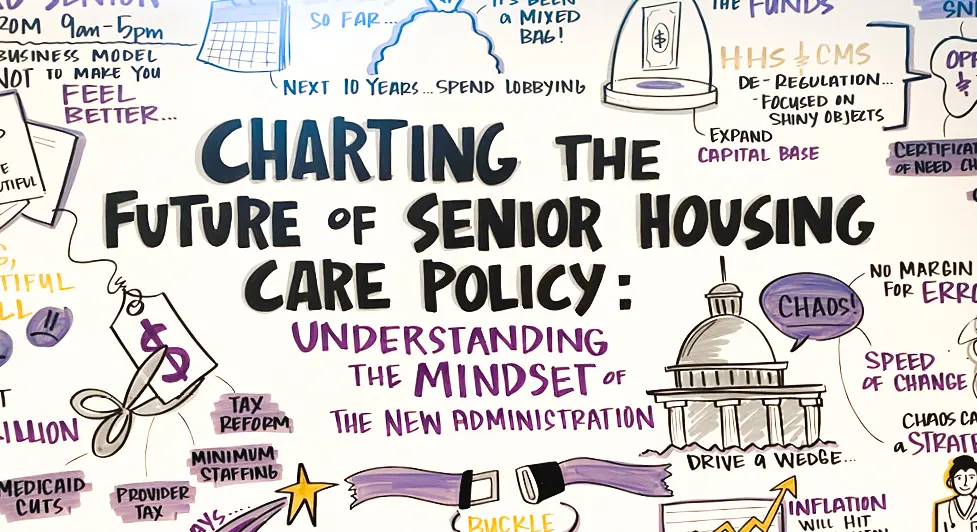 SENIOR
ZOM 9am-5pm
BUSINESS MODEL
NOT TO MAKE YOU
FEEL
BETTER...
SO FAR...
IT'S BEEN
a MIXED
BAG!
NEXT 10 YEARS... SPEND LOBBYING
THE FUNDS
$
HHS & CMS
DE-REGULATION...
- FOCUSED ON
SHINY OBJECTS
EXPAND
CAPITAL BASE
CERTIFICAT
OF NEED
CHARTING THE
FUTURE OF SENIOR HOUSING
CARE POLICY:
UNDERSTANDING
THE MINDSET OF
THE NEW ADMINISTRATION
$
TAX
REFORM
MINIMUM
STAFFING
PROVIDER
TAX
MEDICAID
CUTS
CHAOS!
NO MARGIN
FOR ERRO
SPEED
OF CHANGE
CHAOS CA
a STRAT
DRIVE a WEDGE...
BUCKLE
INFLATION
WILL HIT